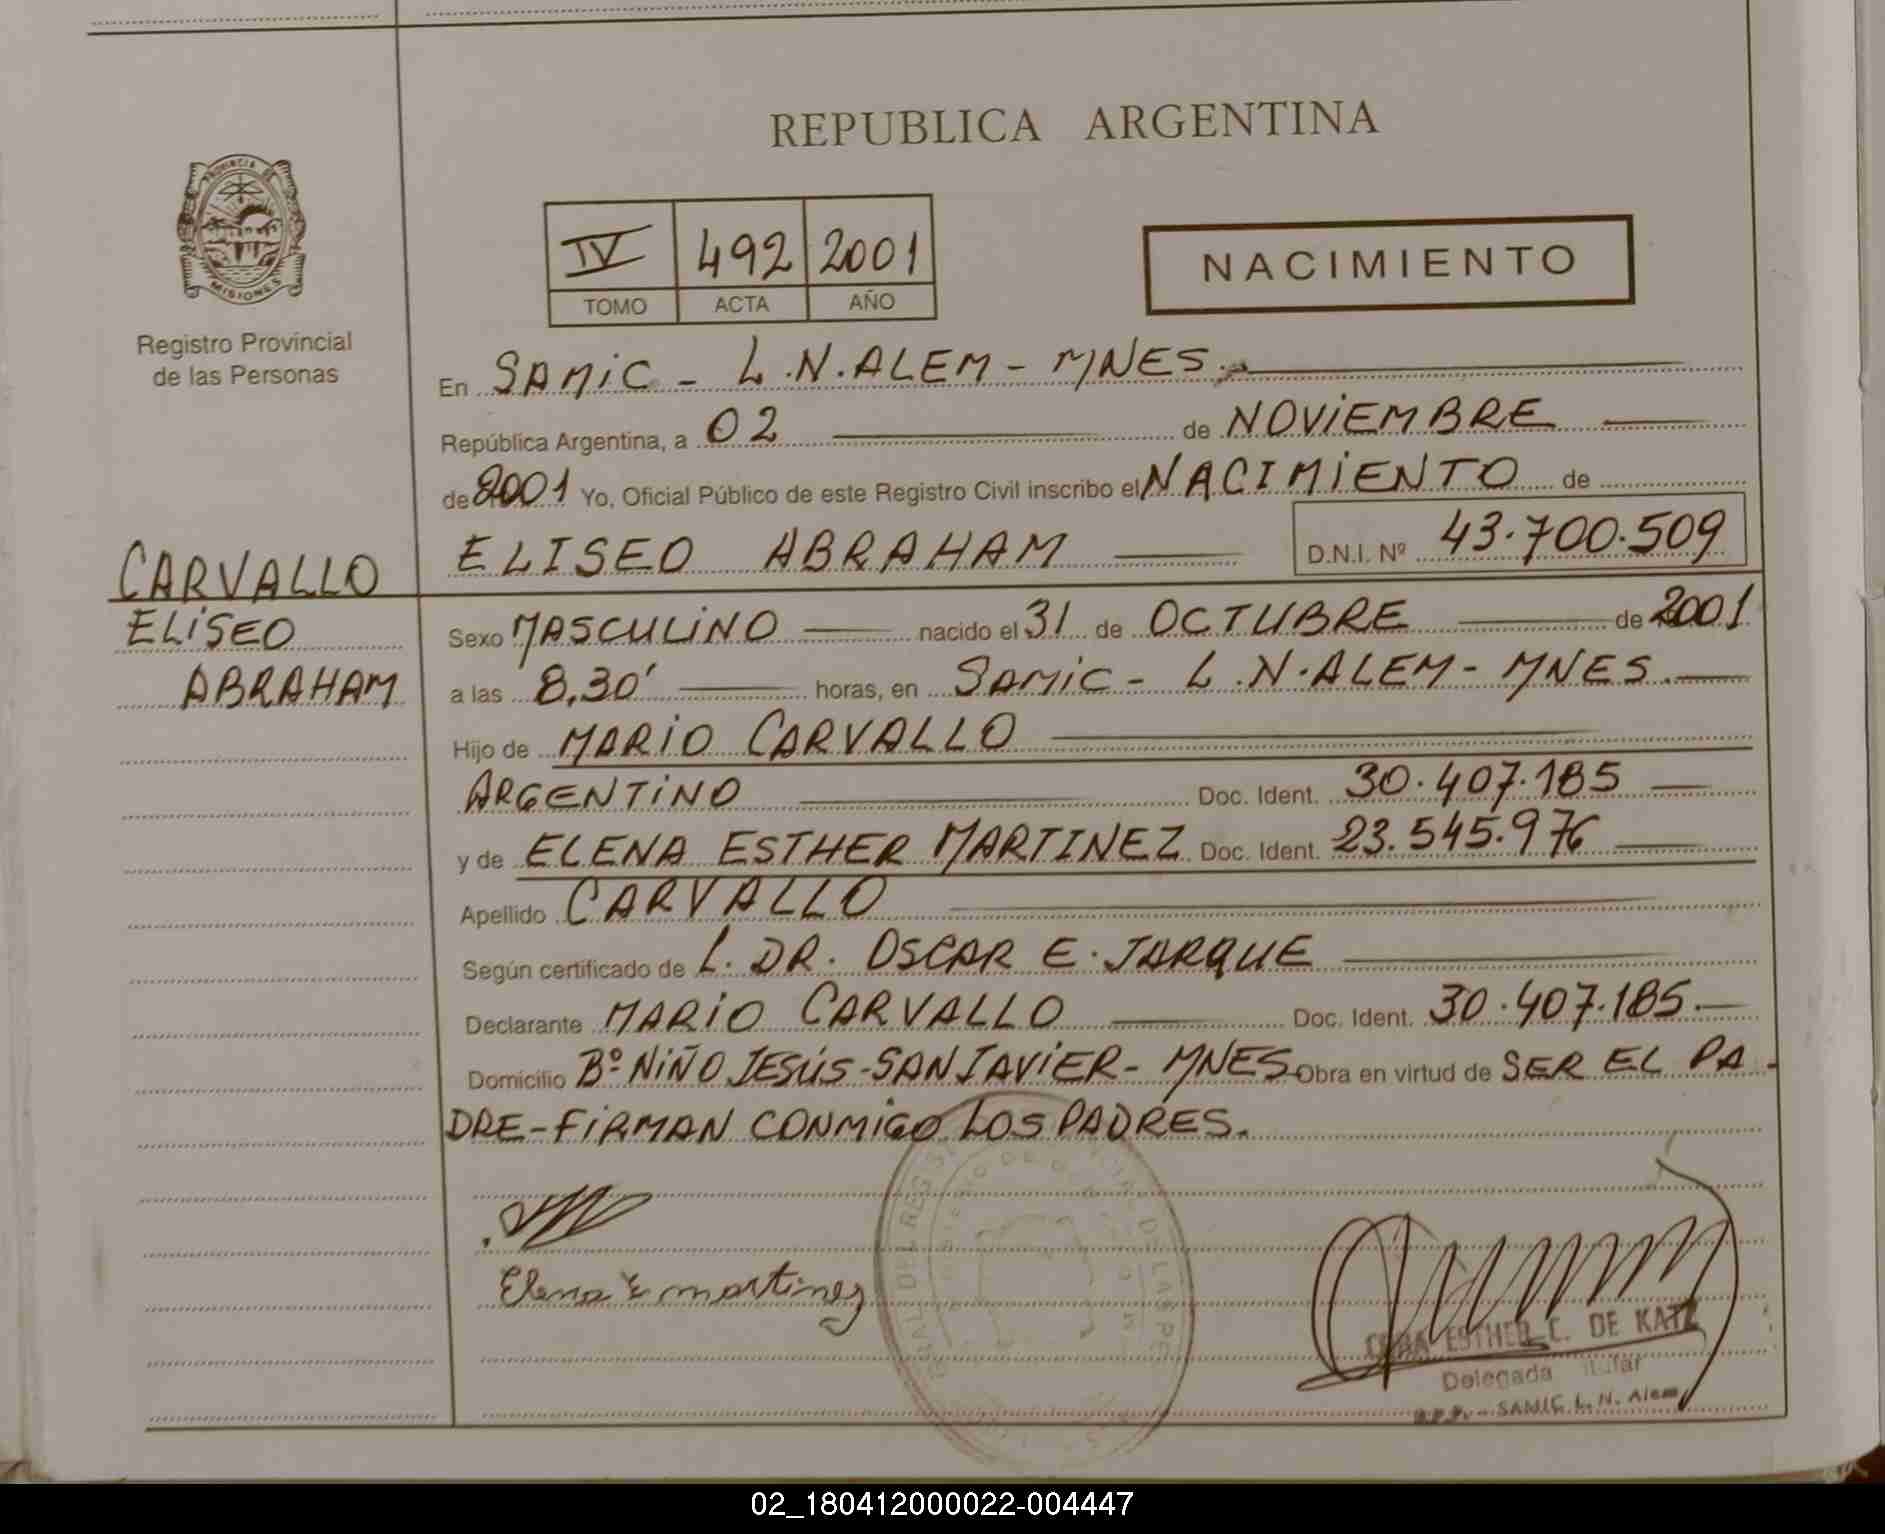 REPUBLICA ARGENTINA
PROVINCIA DE
MISIONES
Registro Provincial
de las Personas
IV 492 2001
TOMO ACTA AÑO
NACIMIENTO
En SAMIC - L.N. ALEM - MNES.
República Argentina, a 02 de NOVIEMBRE
de 2001 Yo, Oficial Público de este Registro Civil inscribo el NACIMIENTO de
ELISEO ABRAHAM D.N.I. Nº 43.700.509
CARVALLO
ELISEO
ABRAHAM
Sexo MASCULINO nacido el 31 de OCTUBRE de 2001
a las 8,30' horas, en SAMIC - L.N. ALEM - MNES.
Hijo de MARIO CARVALLO
ARGENTINO Doc. Ident. 30.407.185
y de ELENA ESTHER MARTINEZ Doc. Ident. 23.545.976
Apellido CARVALLO
Según certificado de L. DR. OSCAR E. JARQUE
Declarante MARIO CARVALLO Doc. Ident. 30.407.185.
Domicilio Bº NIÑO JESÚS - SAN JAVIER - MNES Obra en virtud de SER EL PA-
DRE - FIRMAN CONMIGO LOS PADRES.
Elena E martinez
ESTHER C. DE KATZ
Delegada Titular
SAMIC L. N. Alem
02_180412000022-004447